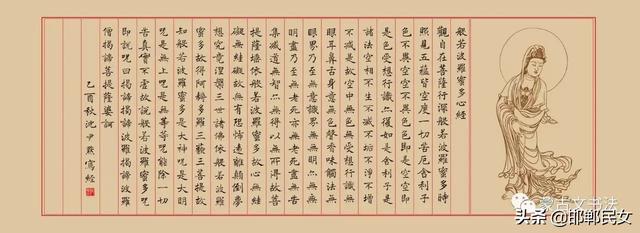 般若波羅蜜多心經
觀自在菩薩行深般若波羅蜜多時
照見五蘊皆空度一切苦厄舍利子
色不異空空不異色色即是空空即
是色受想行識亦復如是舍利子是
諸法空相不生不滅不垢不淨不增
不減是故空中無色無受想行識無
眼耳鼻舌身意無色聲香味觸法無
眼界乃至無意識界無無明亦無無
明盡乃至無老死亦無老死盡無苦
集滅道無智亦無得以無所得故菩
提薩埵依般若波羅蜜多故心無罣
礙無罣礙故無有恐怖遠離顛倒夢
想究竟涅槃三世諸佛依般若波羅
蜜多故得阿耨多羅三藐三菩提故
知般若波羅蜜多是大神咒是大明
咒是無上咒是無等等咒能除一切
苦真實不虛故說般若波羅蜜多咒
即說咒曰揭諦揭諦波羅揭諦波羅
僧揭諦菩提薩婆訶
乙酉秋沈尹默寫經
蒙古文书法
头条 @邯郸民女